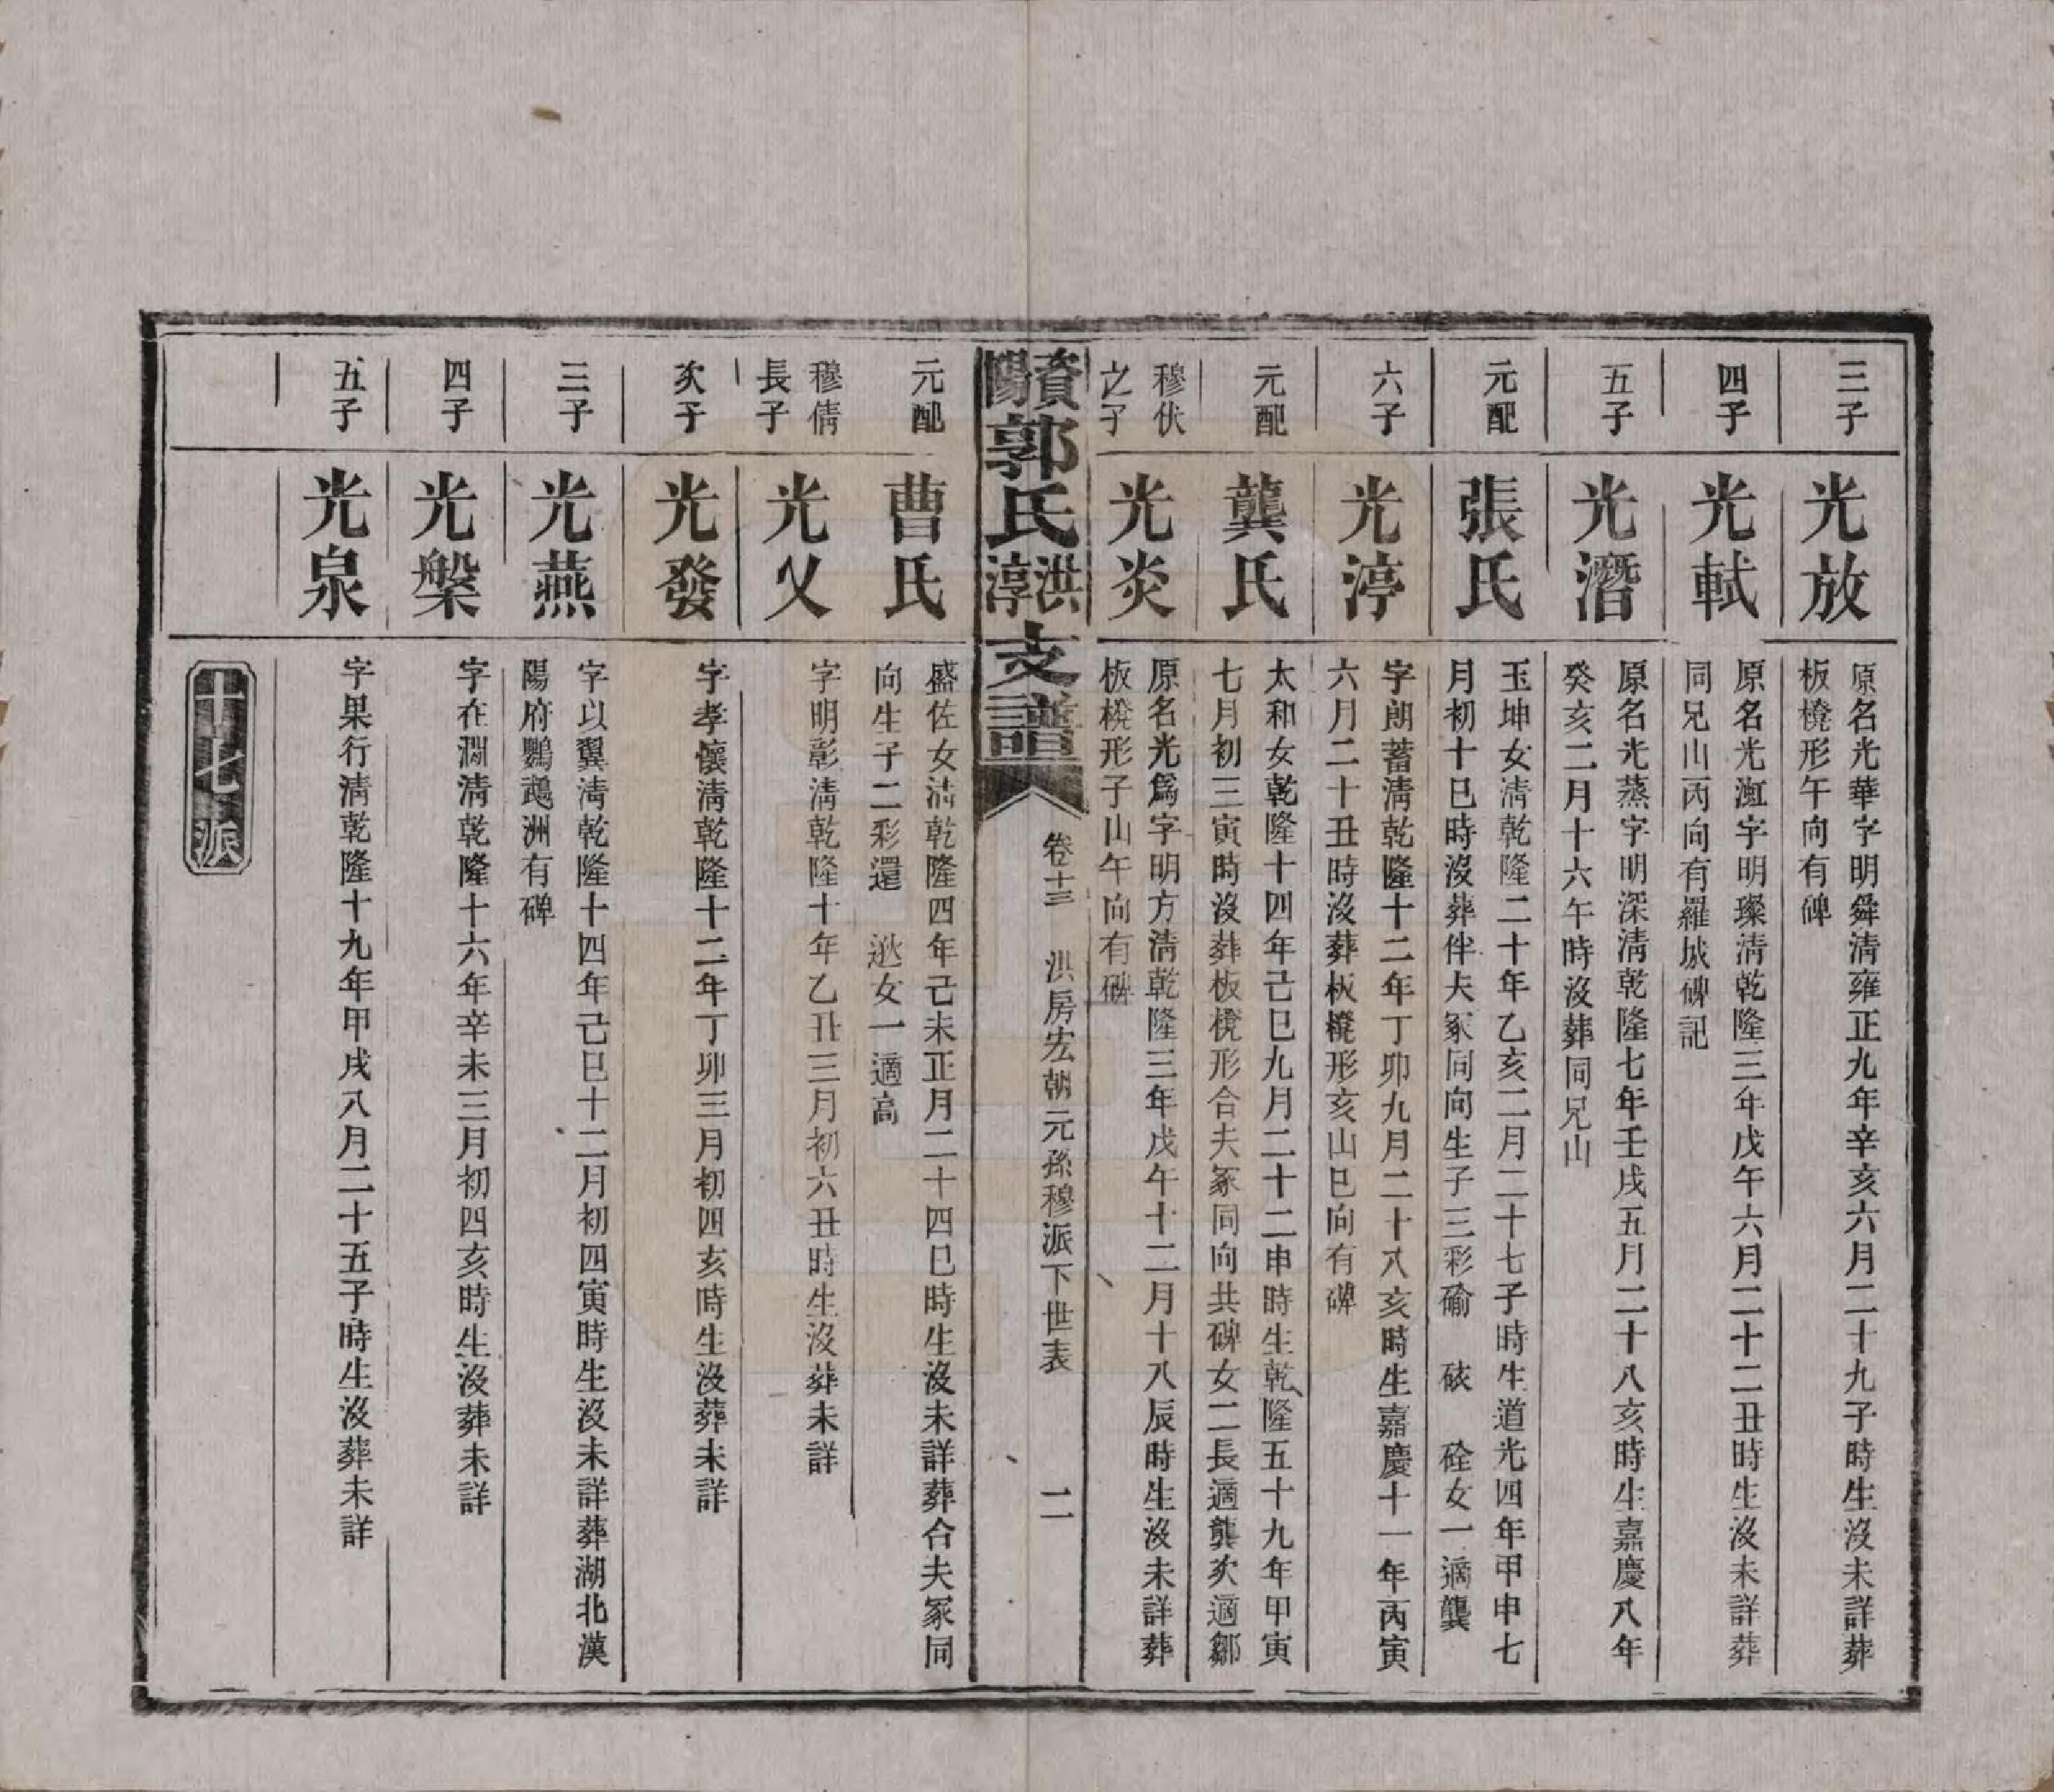 三子
光放
原名光華字明舜清雍正九年辛亥六月二十九子時生沒未詳葬
板櫈形午向有碑
四子
光軾
原名光澒字明璨清乾隆三年戊午六月二十二丑時生沒未詳葬
同兄山丙向有羅城碑記
五子
光潛
原名光蒸字明深清乾隆七年壬戌五月二十八亥時生嘉慶八年
癸亥二月十六午時沒葬同兄山
元配
張氏
玉坤女清乾隆二十年乙亥二月二十七子時生道光四年甲申七
月初十巳時沒葬伴夫冢同向生子三彩碖 硋 硂女一適龔
六子
光渟
字朗蓄清乾隆十二年丁卯九月二十八亥時生嘉慶十一年丙寅
六月二十丑時沒葬板櫈形亥山巳向有碑
元配
龔氏
太和女乾隆十四年己巳九月二十二申時生乾隆五十九年甲寅
七月初三寅時沒葬板櫈形合夫冢同向共碑女二長適龔次適鄒
穆伏
之子
光炎
原名光爲字明方清乾隆三年戊午十二月十八辰時生沒未詳葬
板櫈形子山午向有碑
資陽郭氏洪淳支譜
卷十三 洪房宏朝元孫穆派下世表 二
元配
曹氏
盛佐女清乾隆四年己未正月二十四巳時生沒未詳葬合夫冢同
向生子二彩還 逖女一適高
穆倩
長子
光乂
字明彰清乾隆十年乙丑三月初六丑時生沒葬未詳
次子
光發
字孝懷清乾隆十二年丁卯三月初四亥時生沒葬未詳
三子
光燕
字以翼清乾隆十四年己巳十二月初四寅時生沒未詳葬湖北漢
陽府鸚鵡洲有碑
四子
光槃
字在澗清乾隆十六年辛未三月初四亥時生沒葬未詳
五子
光泉
字果行清乾隆十九年甲戌八月二十五子時生沒葬未詳
十七派